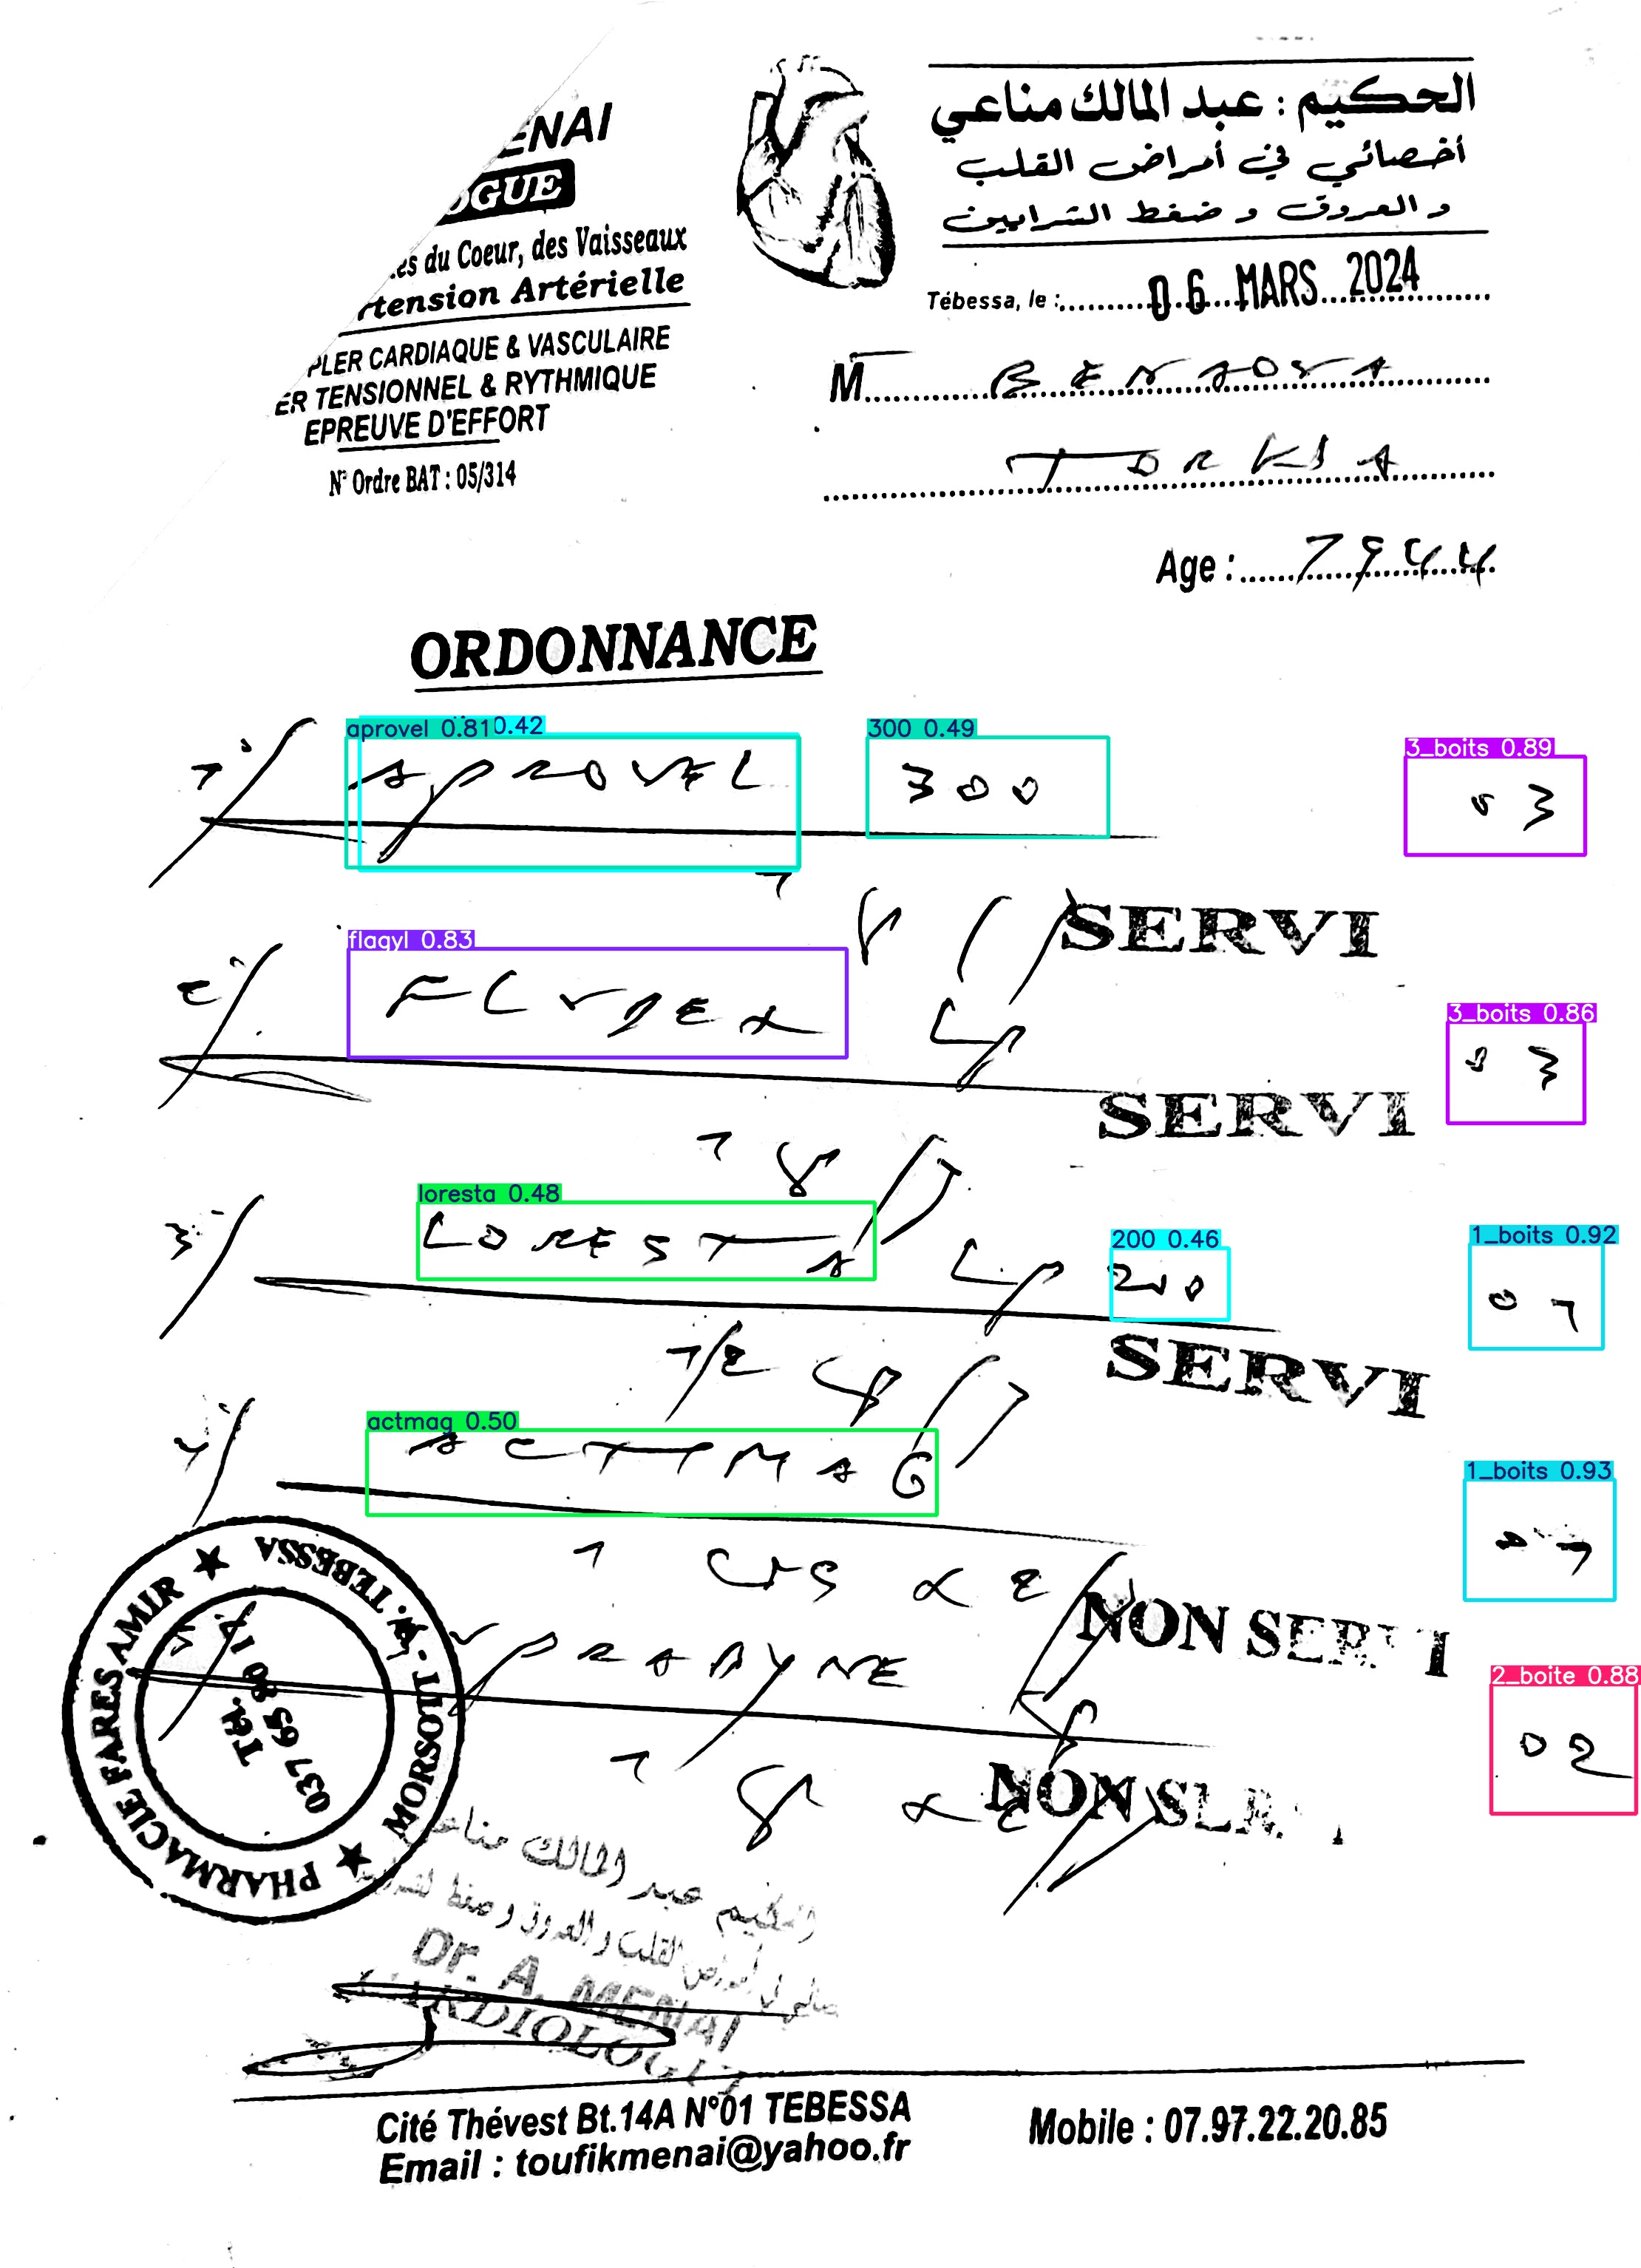 ENAI
OGUE
es du Coeur, des Vaisseaux
rtension Artérielle
PLER CARDIAQUE & VASCULAIRE
ER TENSIONNEL & RYTHMIQUE
EPREUVE D'EFFORT
N° Ordre BAT : 05/314
الحكيم : عبد المالك مناعي
أخصائي في أمراض القلب
و العروق و ضغط الشرايين
Tébessa, le : 06 MARS 2024
M BENAOUA
TORKIA
Age : 1944
ORDONNANCE
aprovel 0.81 0.42
300 0.49
3_boits 0.89
1°/ APROVEL 300 03
SERVI
flagyl 0.83
3_boits 0.86
2°/ FLUDEX LP 03
SERVI
loresta 0.48
200 0.46
1_boits 0.92
3°/ LORESTA LP 200 01
1/2 cp / J
SERVI
actmag 0.50
1_boits 0.93
4°/ ACTIMAG 01
1 CMS x 2 / J
NON SERVI
2_boite 0.88
PRABYNE 02
1
NON
PHARMACIE FARES AMIR ★ MORSOTT - W. TEBESSA ★
Tél.
037 65 80 17
الحكيم عبد المالك مناعي
Dr. A. MENAI
CARDIOLOGUE
Cité Thévest Bt.14A N°01 TEBESSA
Email : toufikmenai@yahoo.fr
Mobile : 07.97.22.20.85